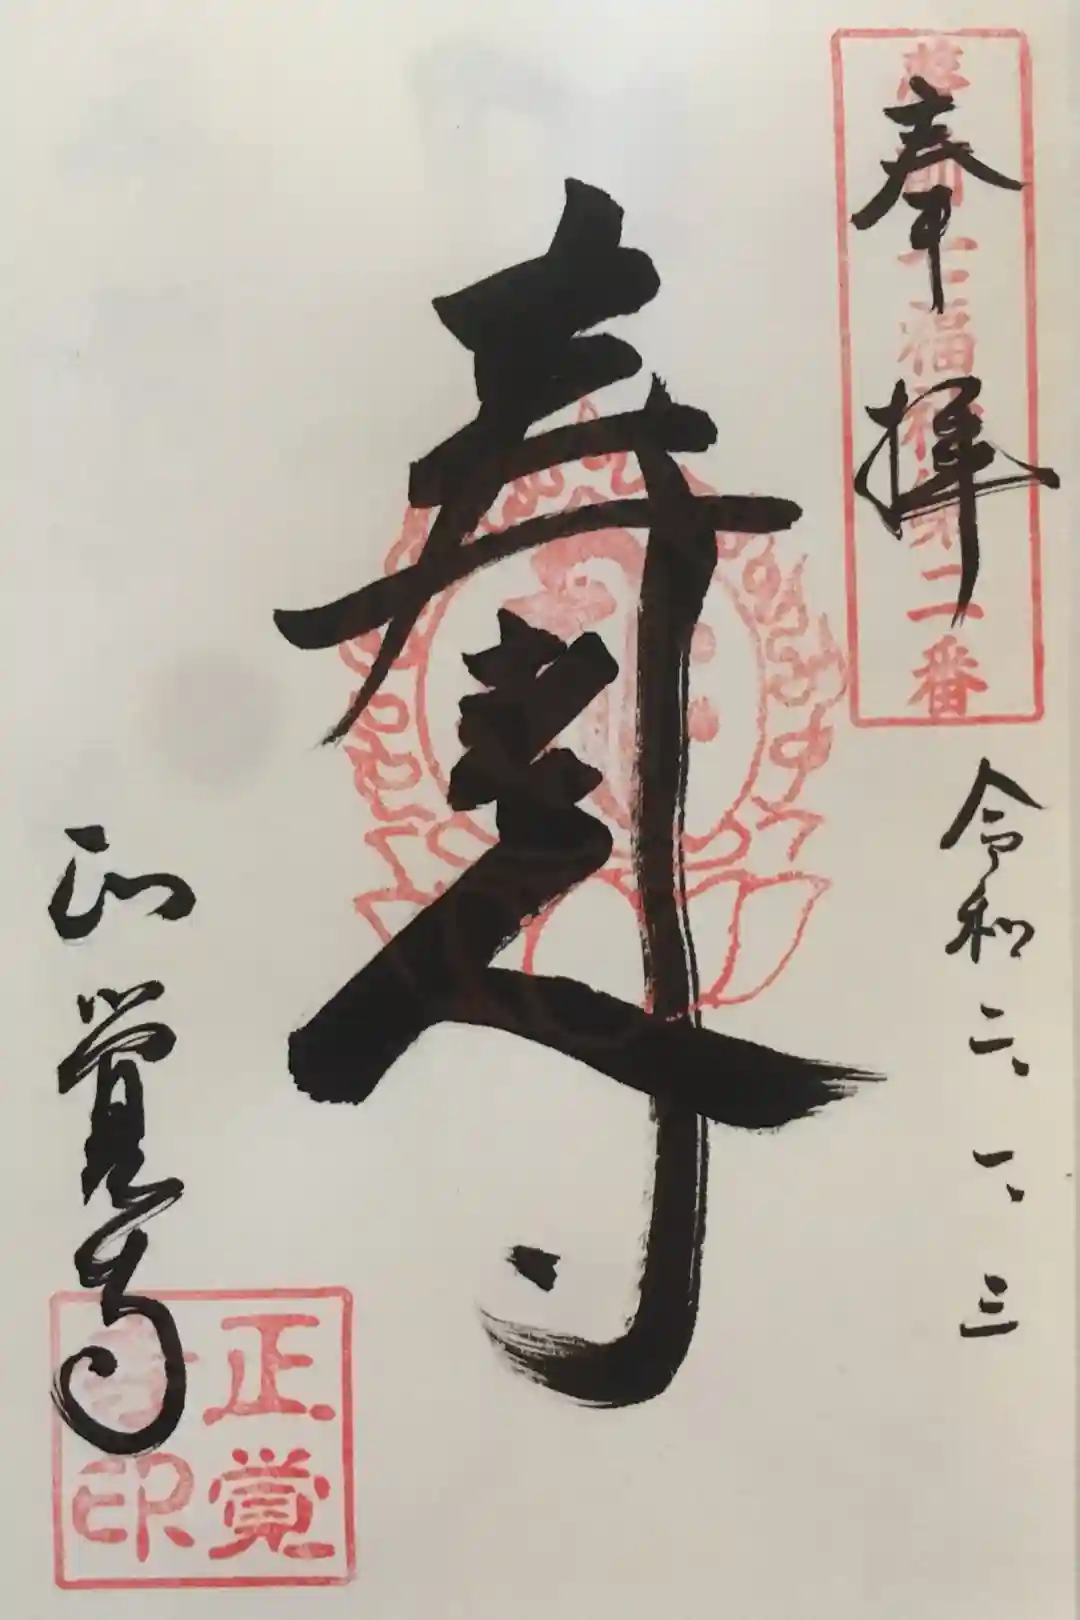 越前七福神第二番
奉拝
令和二、一、三
寿老人
正覚寺
正覚寺印